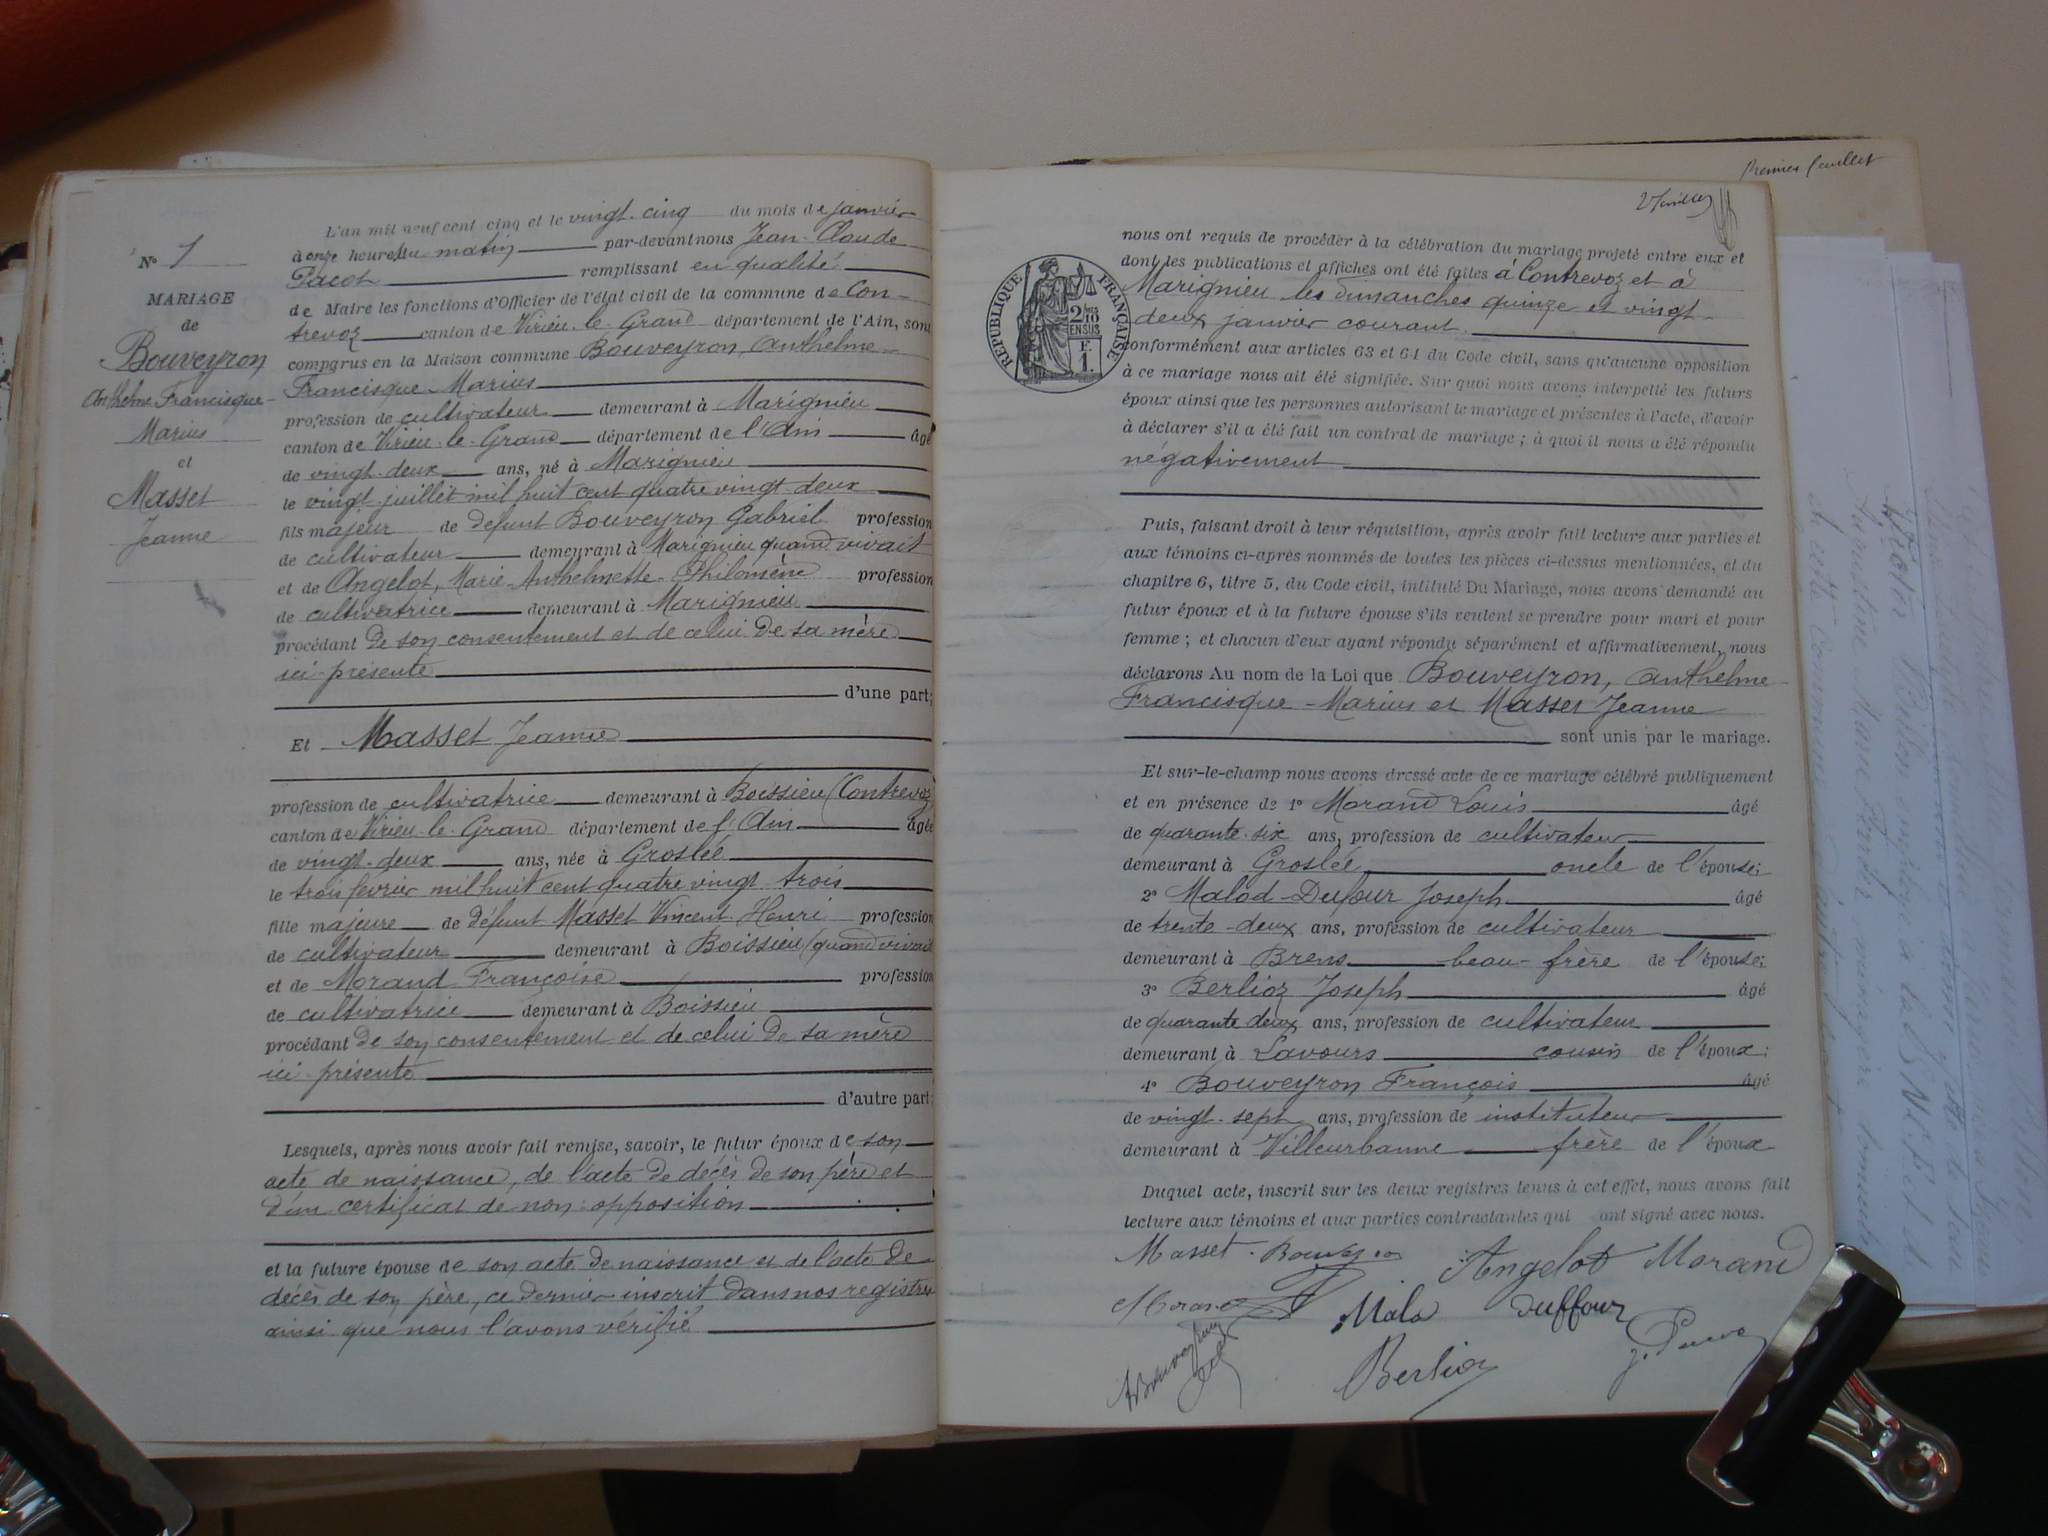 N° 1
MARIAGE
de
Bouveyron
Anthelme Francisque-
Marius
et
Masset
Jeanne
L'an mil neuf cent cinq et le vingt-cinq du mois de janvier
à onze heures du matin par-devant nous Jean-Claude
Pacot remplissant en qualité
de Maire les fonctions d'Officier de l'état civil de la commune de Con-
trevoz canton de Virieu-le-Grand département de l'Ain, sont
comparus en la Maison commune Bouveyron, Anthelme-
Francisque-Marius
profession de cultivateur demeurant à Marignieu
canton de Virieu-le-Grand département de l'Ain âgé
de vingt-deux ans, né à Marignieu
le vingt juillet mil huit cent quatre vingt-deux
fils majeur de défunt Bouveyron Gabriel profession
de cultivateur demeurant à Marignieu quand vivait
et de Angelot, Marie-Anthelmette-Philomène profession
de cultivatrice demeurant à Marignieu
procédant de son consentement et de celui de sa mère
ici-présente
d'une part;
Et Masset Jeanne
profession de cultivatrice demeurant à Boissieu (Contrevoz)
canton de Virieu-le-Grand département de l'Ain âgée
de vingt-deux ans, née à Groslée
le trois février mil huit cent quatre vingt-trois
fille majeure de défunt Masset Vincent-Henri profession
de cultivateur demeurant à Boissieu (quand vivait
et de Morand Françoise profession
de cultivatrice demeurant à Boissieu
procédant de son consentement et de celui de sa mère
ici-présente
d'autre part;
Lesquels, après nous avoir fait remise, savoir, le futur époux de son
acte de naissance, de l'acte de décès de son père et
d'un certificat de non-opposition
et la future épouse de son acte de naissance et de l'acte de
décès de son père, ce dernier inscrit dans nos registres
ainsi que nous l'avons vérifié
Premier feuillet
RÉPUBLIQUE FRANÇAISE
2/10
EN SUS
F.
1.
nous ont requis de procéder à la célébration du mariage projeté entre eux et
dont les publications et affiches ont été faites à Contrevoz et à
Marignieu les dimanches quinze et vingt-
deux janvier courant
conformément aux articles 63 et 64 du Code civil, sans qu'aucune opposition
à ce mariage nous ait été signifiée. Sur quoi nous avons interpellé les futurs
époux ainsi que les personnes autorisant le mariage et présentes à l'acte, d'avoir
à déclarer s'il a été fait un contrat de mariage; à quoi il nous a été répondu
négativement
Puis, faisant droit à leur réquisition, après avoir fait lecture aux parties et
aux témoins ci-après nommés de toutes les pièces ci-dessus mentionnées, et du
chapitre 6, titre 5, du Code civil, intitulé Du Mariage, nous avons demandé au
futur époux et à la future épouse s'ils veulent se prendre pour mari et pour
femme; et chacun d'eux ayant répondu séparément et affirmativement, nous
déclarons Au nom de la Loi que Bouveyron, Anthelme-
Francisque-Marius et Masset Jeanne
sont unis par le mariage.
Et sur-le-champ nous avons dressé acte de ce mariage célébré publiquement
et en présence de 1° Morand Louis âgé
de quarante-six ans, profession de cultivateur
demeurant à Groslée oncle de l'épouse;
2° Malod-Dufour Joseph âgé
de trente-deux ans, profession de cultivateur
demeurant à Brens beau-frère de l'épouse;
3° Berlioz Joseph âgé
de quarante deux ans, profession de cultivateur
demeurant à Lavours cousin de l'époux;
4° Bouveyron François âgé
de vingt-sept ans, profession de instituteur
demeurant à Villeurbanne frère de l'époux
Duquel acte, inscrit sur les deux registres tenus à cet effet, nous avons fait
lecture aux témoins et aux parties contractantes qui ont signé avec nous.
Masset Bouveyron Angelot Morand
Morand Malo Duffour
Berlioz